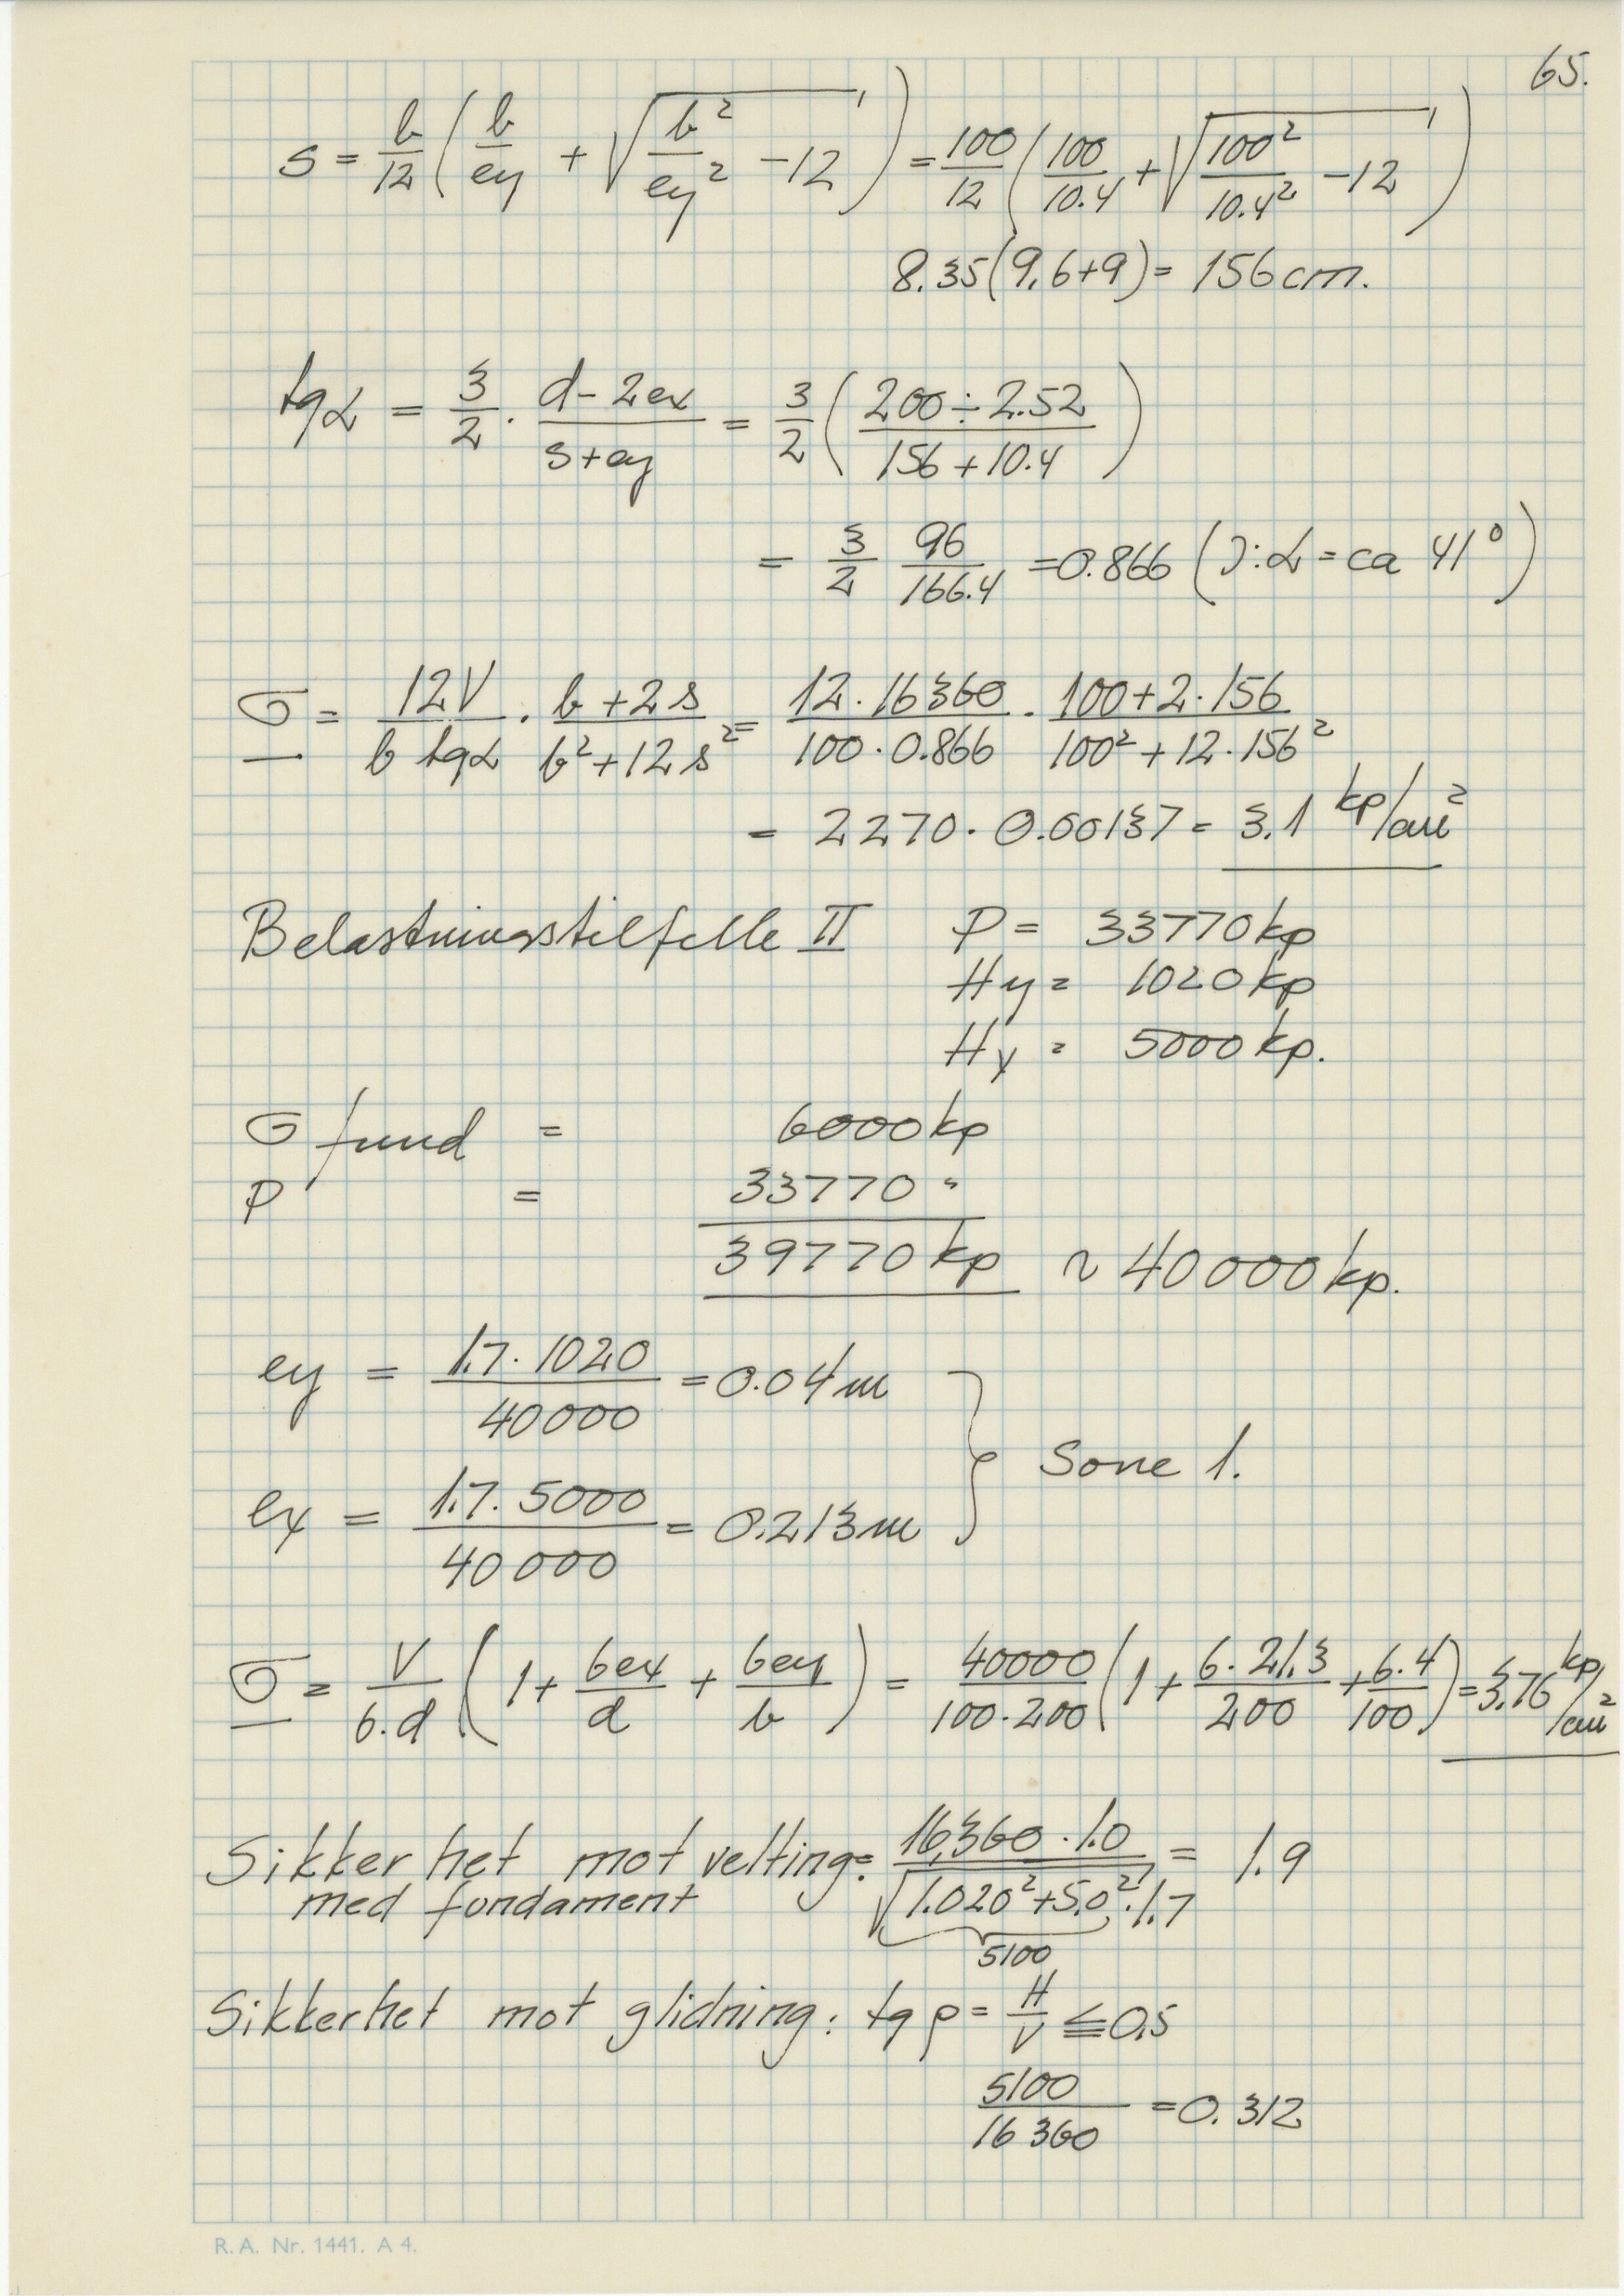 65.
s = b/12 ( b/ey + √(b²/ey² - 12) ) = 100/12 ( 100/10.4 + √(100²/10.4² - 12) )
8.35(9,6+9) = 156 cm.
tg α = 3/2 · (d - 2ex)/(s+ey) = 3/2 ( (200 ÷ 2.52)/(156 + 10.4) )
= 3/2 96/166.4 = 0.866 (ɔ: α = ca 41°)
σ = 12V/(b tgα) · (b + 2s)/(b² + 12s²) = (12 · 16360)/(100 · 0.866) · (100 + 2 · 156)/(100² + 12 · 156²)
= 2270 · 0.00137 = 3.1 kp/cm²
Belastningstilfelle II P = 33770 kp
Hy = 1020 kp
Hx = 5000 kp.
G fund = 6000 kp
P = 33770 "
39770 kp ~ 40000 kp.
ey = (1.7 · 1020)/40000 = 0.04 m
} Sone 1.
ex = (1.7 · 5000)/40000 = 0.213 m
σ = V/(b.d) ( 1 + 6ex/d + 6ey/b ) = 40000/(100 · 200) ( 1 + (6 · 21.3)/200 + (6 · 4)/100 ) = 3,76 kp/cm²
Sikkerhet mot velting: (16,360 · 1.0)/(√(1.020² + 5.0²) · 1.7) = 1.9
med fundament
5100
Sikkerhet mot glidning: tg ρ = H/V ≦ 0,5
5100/16360 = 0.312
R.A. Nr. 1441. A 4.